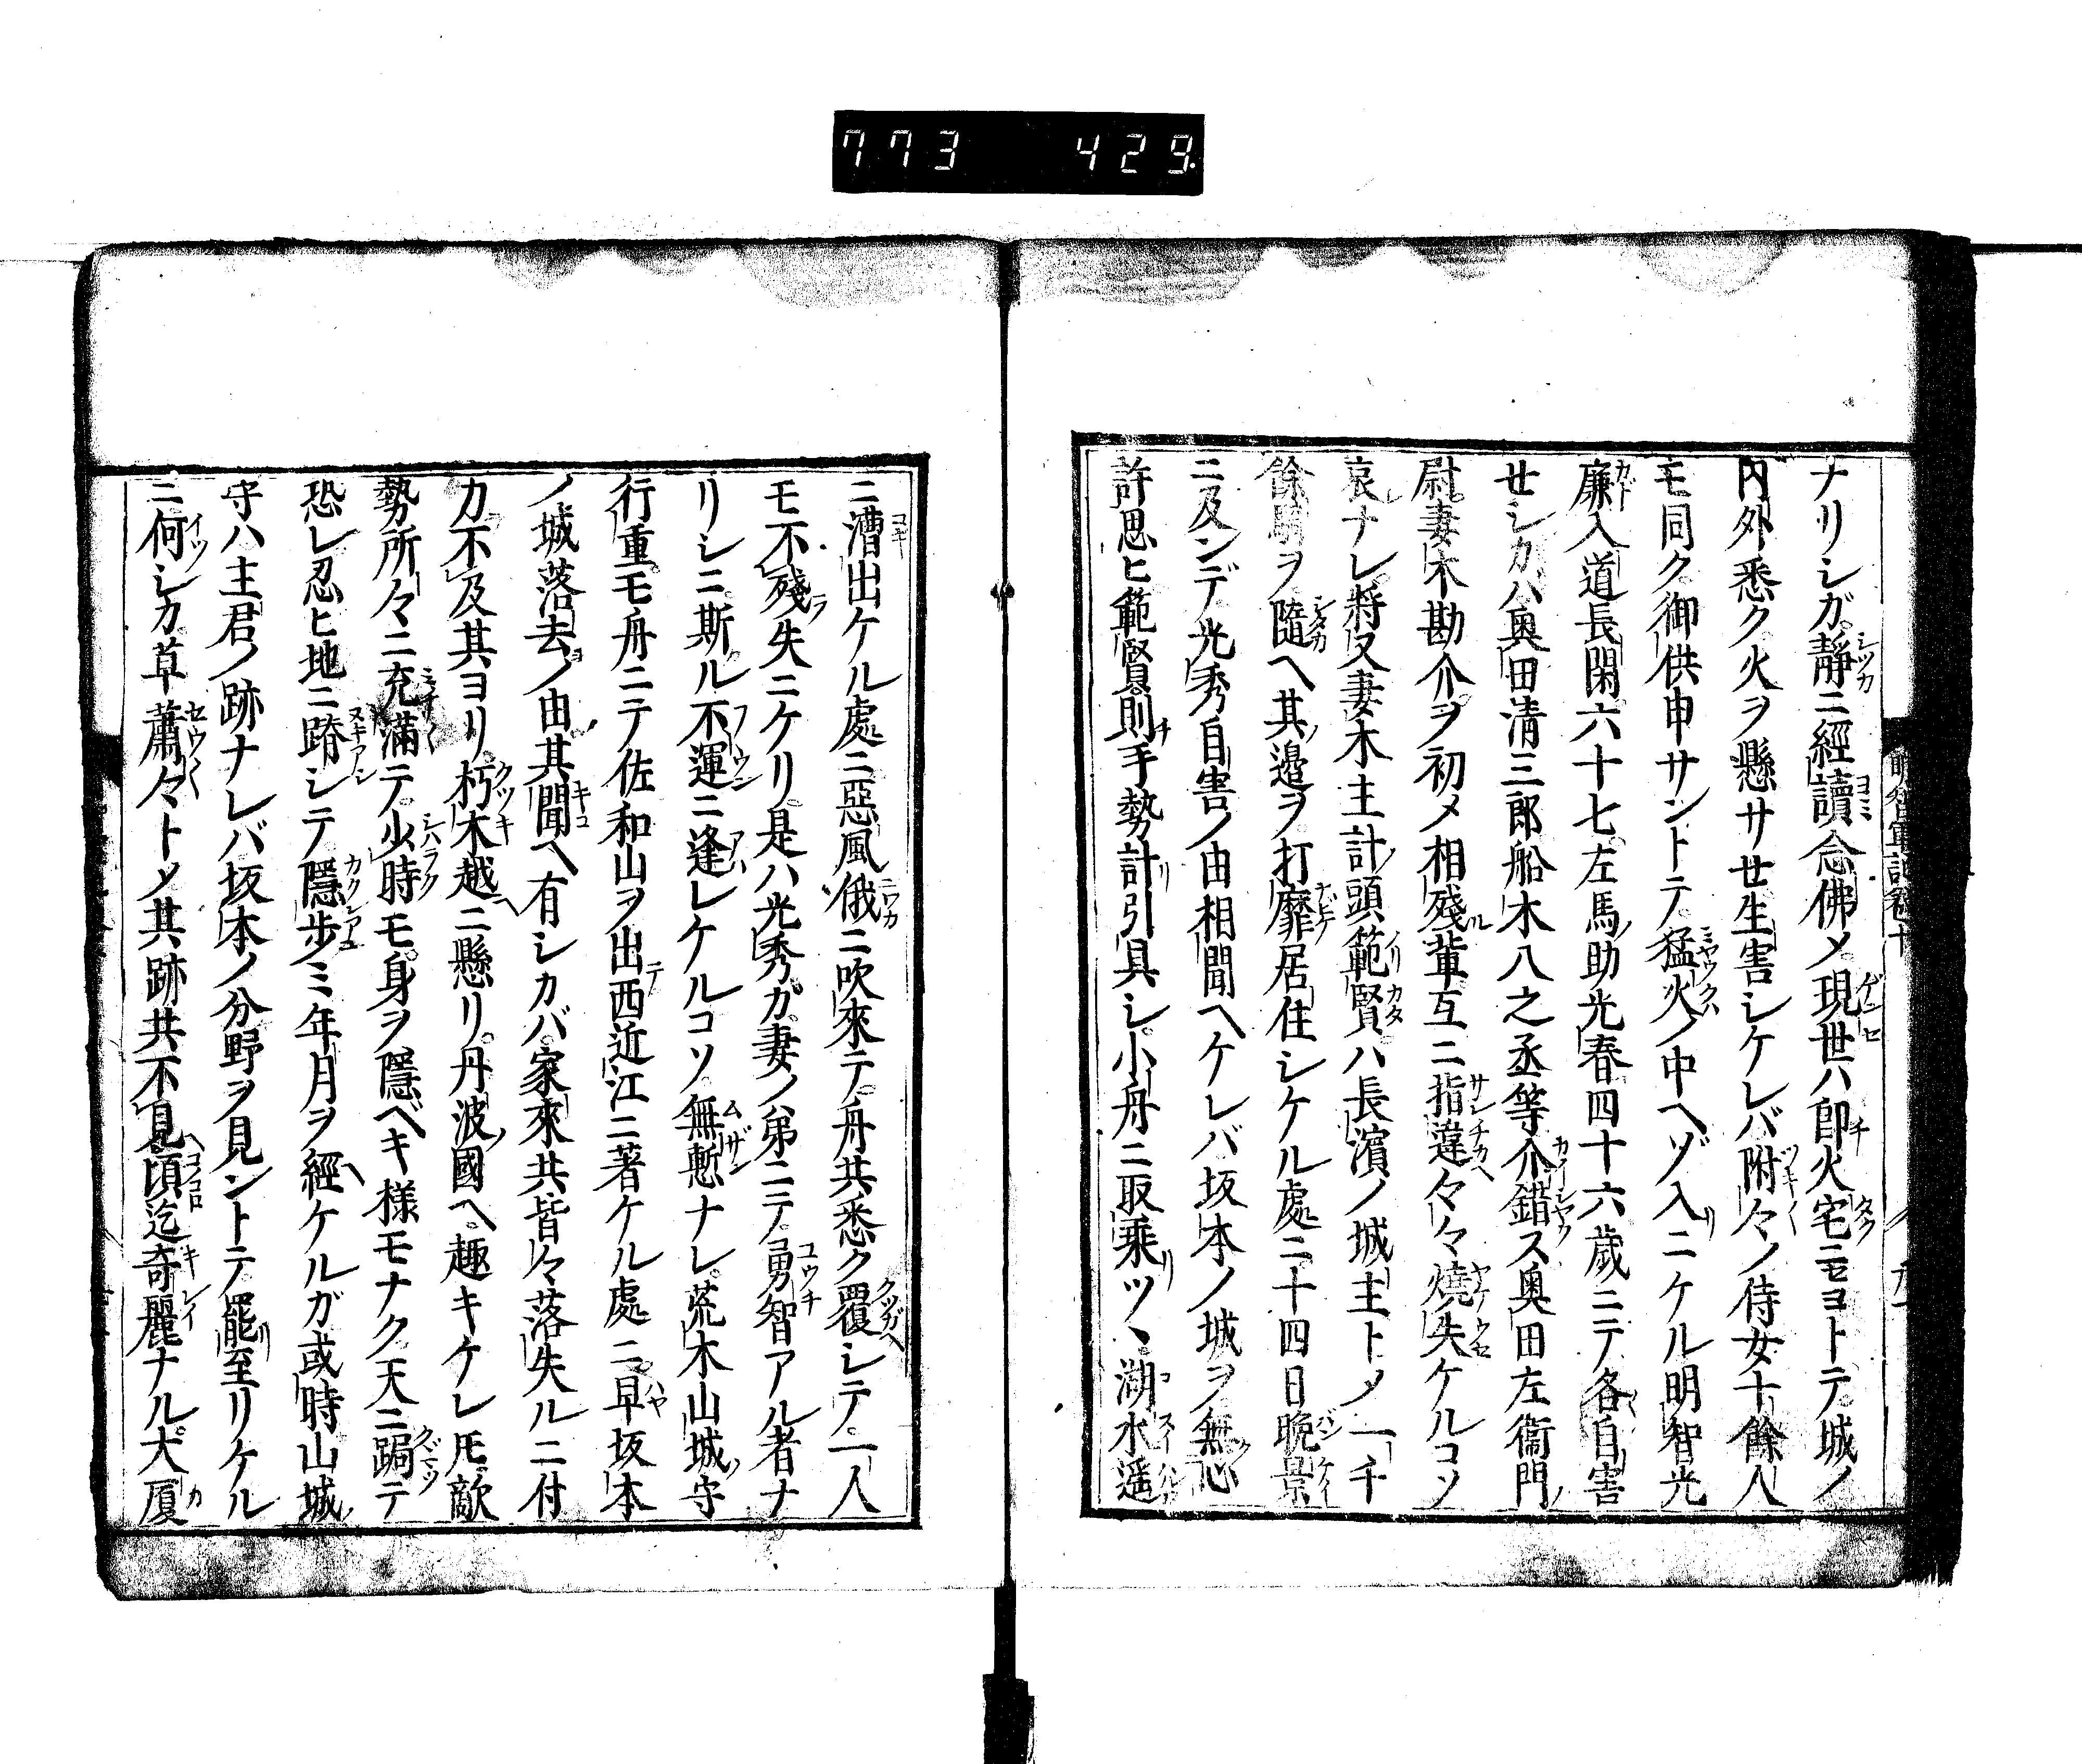 773 429
明智軍記卷十
ナリシガ靜ニ經讀念佛メ現世ハ即火宅ニモヨトテ城ノ
内外悉ク火ヲ懸サ世生害シケレバ附々ノ侍女十餘人
モ同ク御供申サントテ猛火ノ中ヘゾ入ニケル明智光
廉入道長閑六十七左馬助光春四十六歲ニテ各自害
せシカハ奥田清三郎船木八之丞等介錯ス奥田左衞門
尉妻木勘介ヲ初メ相殘輩互ニ指違々々燒失ケルコソ
哀ナレ將又妻木主計頭範賢ハ長濱ノ城主トメ一千
餘騎ヲ隨ヘ其邉ヲ打靡居住シケル處ニ十四日晩景
ニ及ンデ光秀自害ノ由相聞ヘケレバ坂本ノ城ヲ無心
許思ヒ範賢則手勢計引具シ小舟ニ取乗ツヽ湖水遥
ニ漕出ケル處ニ惡風俄ニ吹來テ舟共悉ク覆シテ一人
モ不殘失ニケリ是ハ光秀ガ妻ノ弟ニテ勇智アル者ナ
リシニ斯ル不運ニ逢レケルコソ無慙ナレ荒木山城守
行重モ舟ニテ佐和山ヲ出西近江ニ著ケル處ニ早坂本
ノ城落去ノ由其聞ヘ有シカバ家來共皆々落失ルニ付
力不及其ヨリ朽木越ニ懸リ丹波國ヘ趣キケレ𪜈敵
勢所々ニ充滿テ少時モ身ヲ隱ベキ様モナク天ニ跼テ
恐レ忍ヒ地ニ蹐シテ隱歩ミ年月ヲ經ケルガ或時山城
守ハ主君ノ跡ナレバ坂本ノ分野ヲ見ントテ罷至リケル
ニ何シカ草蕭々トメ其跡共不見頃迄奇麗ナル大厦